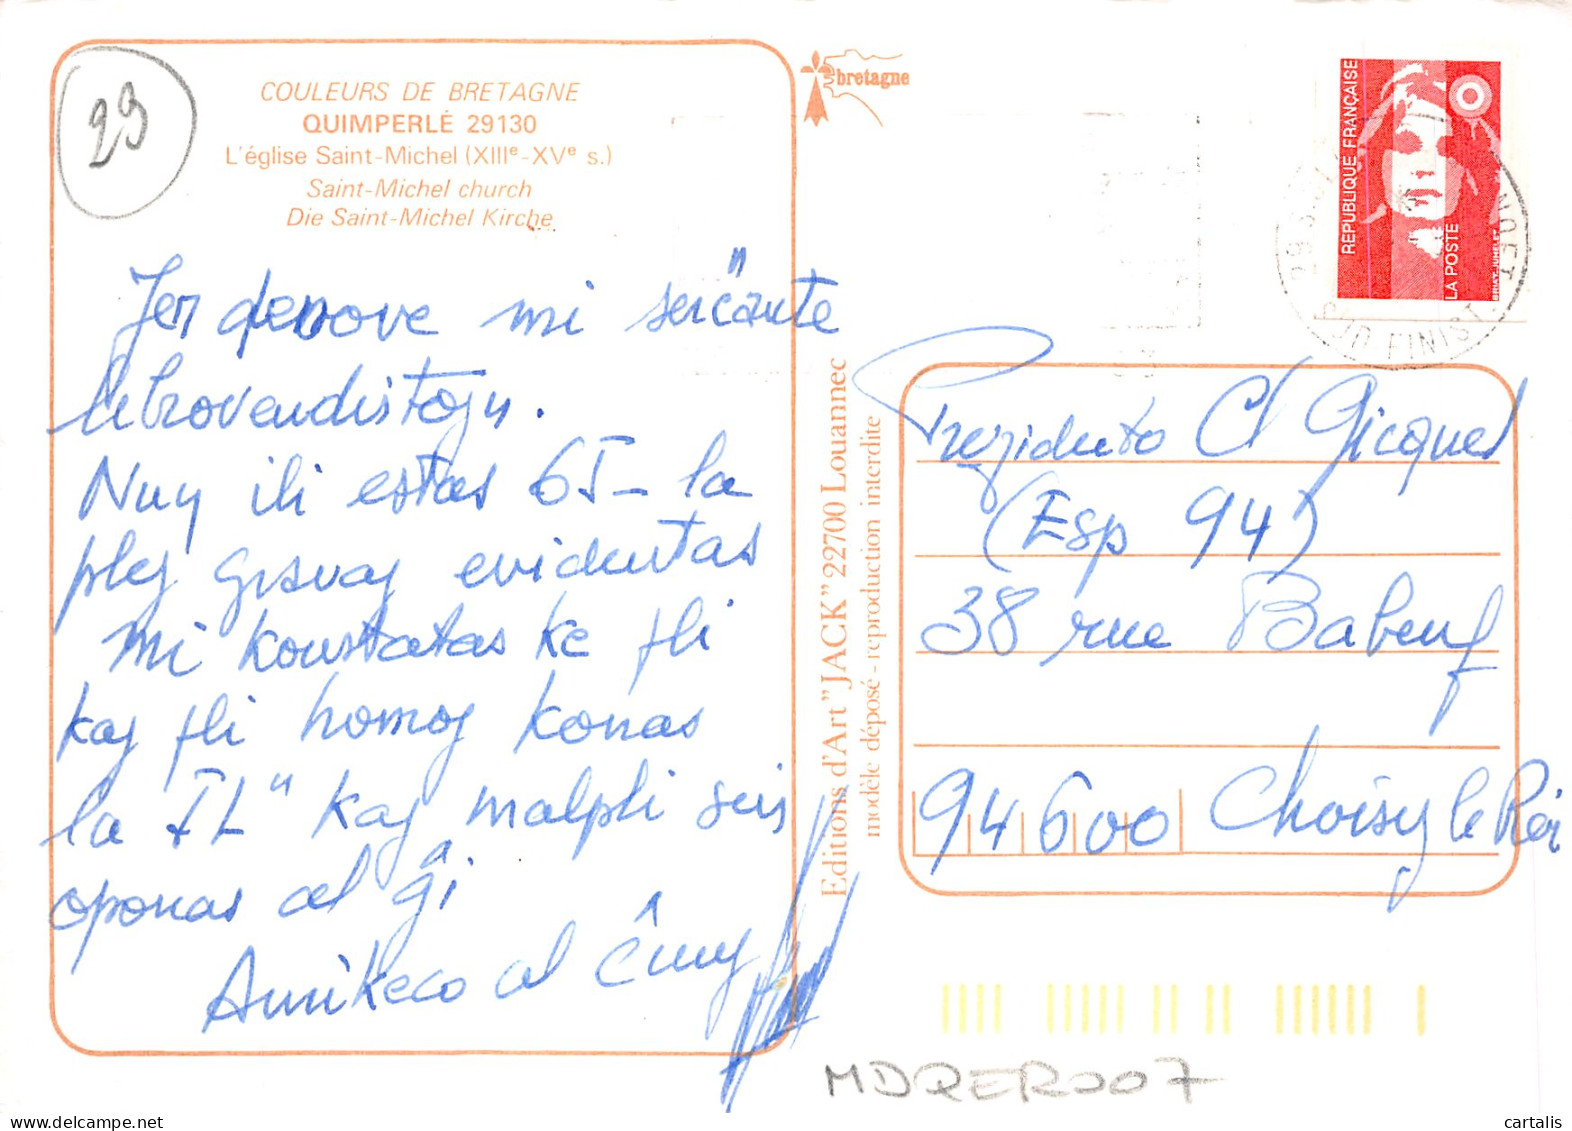 29
COULEURS DE BRETAGNE
QUIMPERLÉ 29130
L'église Saint-Michel (XIIIᵉ-XVᵉ s.)
Saint-Michel church
Die Saint-Michel Kirche
bretagne
RÉPUBLIQUE FRANÇAISE
LA POSTE
SUD FINIST.
Jen denove mi serĉante
librovendistojn.
Nun ili estas 65 - la
plej gravaj evidentas
mi konstatas ke pli
kaj pli homoj konas
la IL" kaj malpli
oponas al ĝi.
Amikeco al ĉiuj
Editions d'Art "JACK" 22700 Louannec
modèle déposé - reproduction interdite
Prezidento Cl Gicquel
(Esp 94)
38 rue Babeuf
94600 Choisy le Roi
MDQER007
cartalis